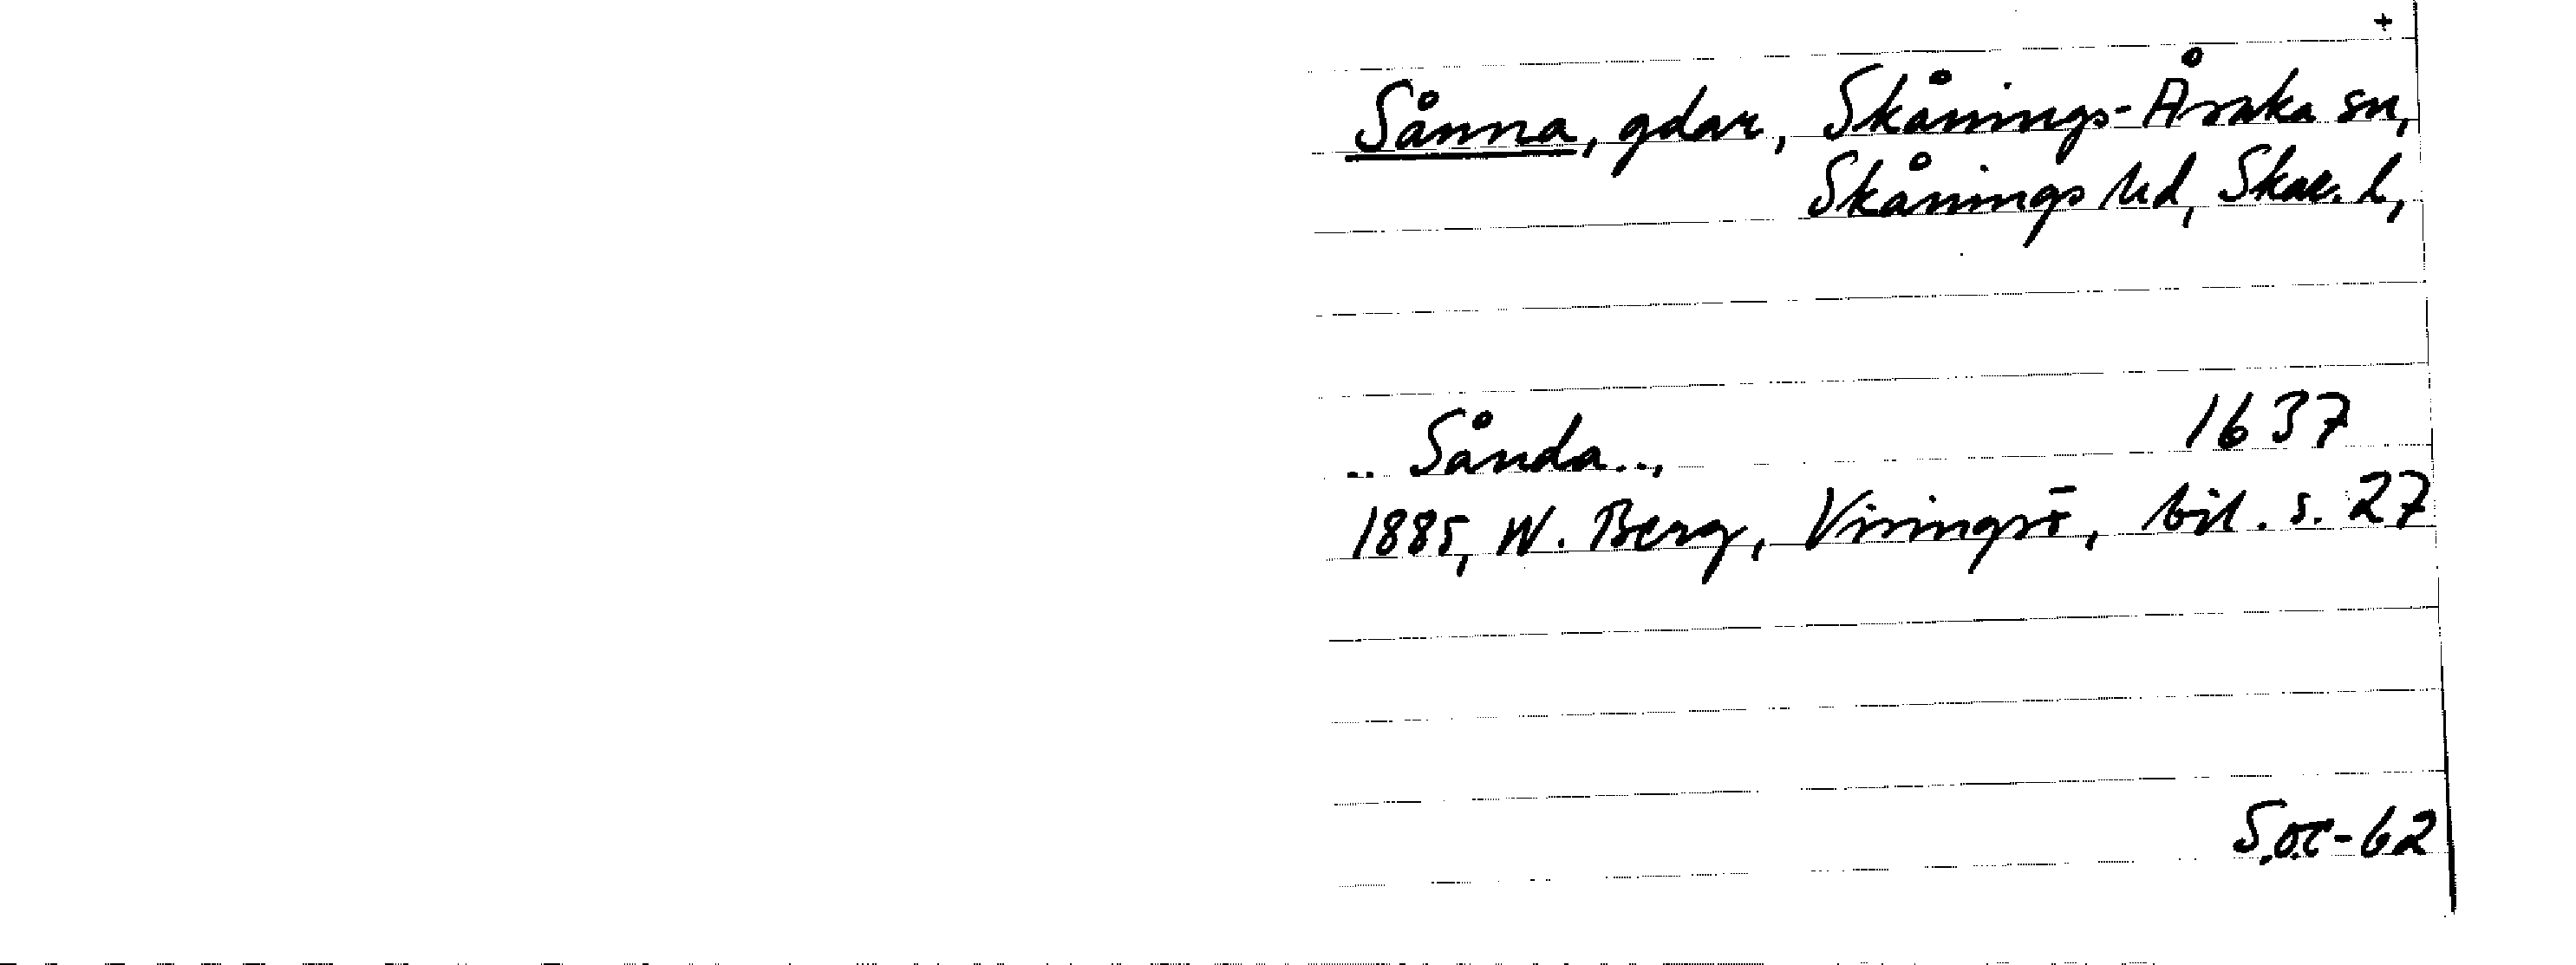 +
Sånna, gdar, Skånings-Åsaka sn,
Skånings hd, Skar. l,
.. Sånda.., 1637
1885, W. Berg, Visingsö, bil. s. 27
-62